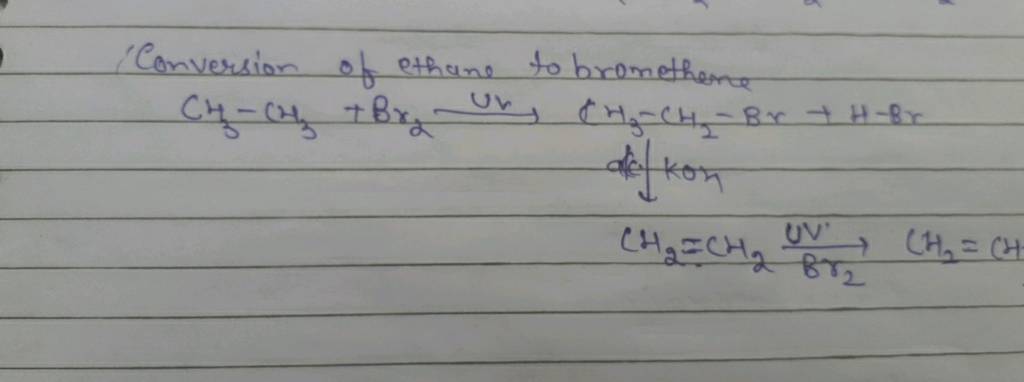 Conversion of ethane to bromethene
CH3-CH3 + Br2 UV → CH3-CH2-Br + H-Br
alc. ↓ KOH
CH2=CH2 UV → Br2 CH2=CH